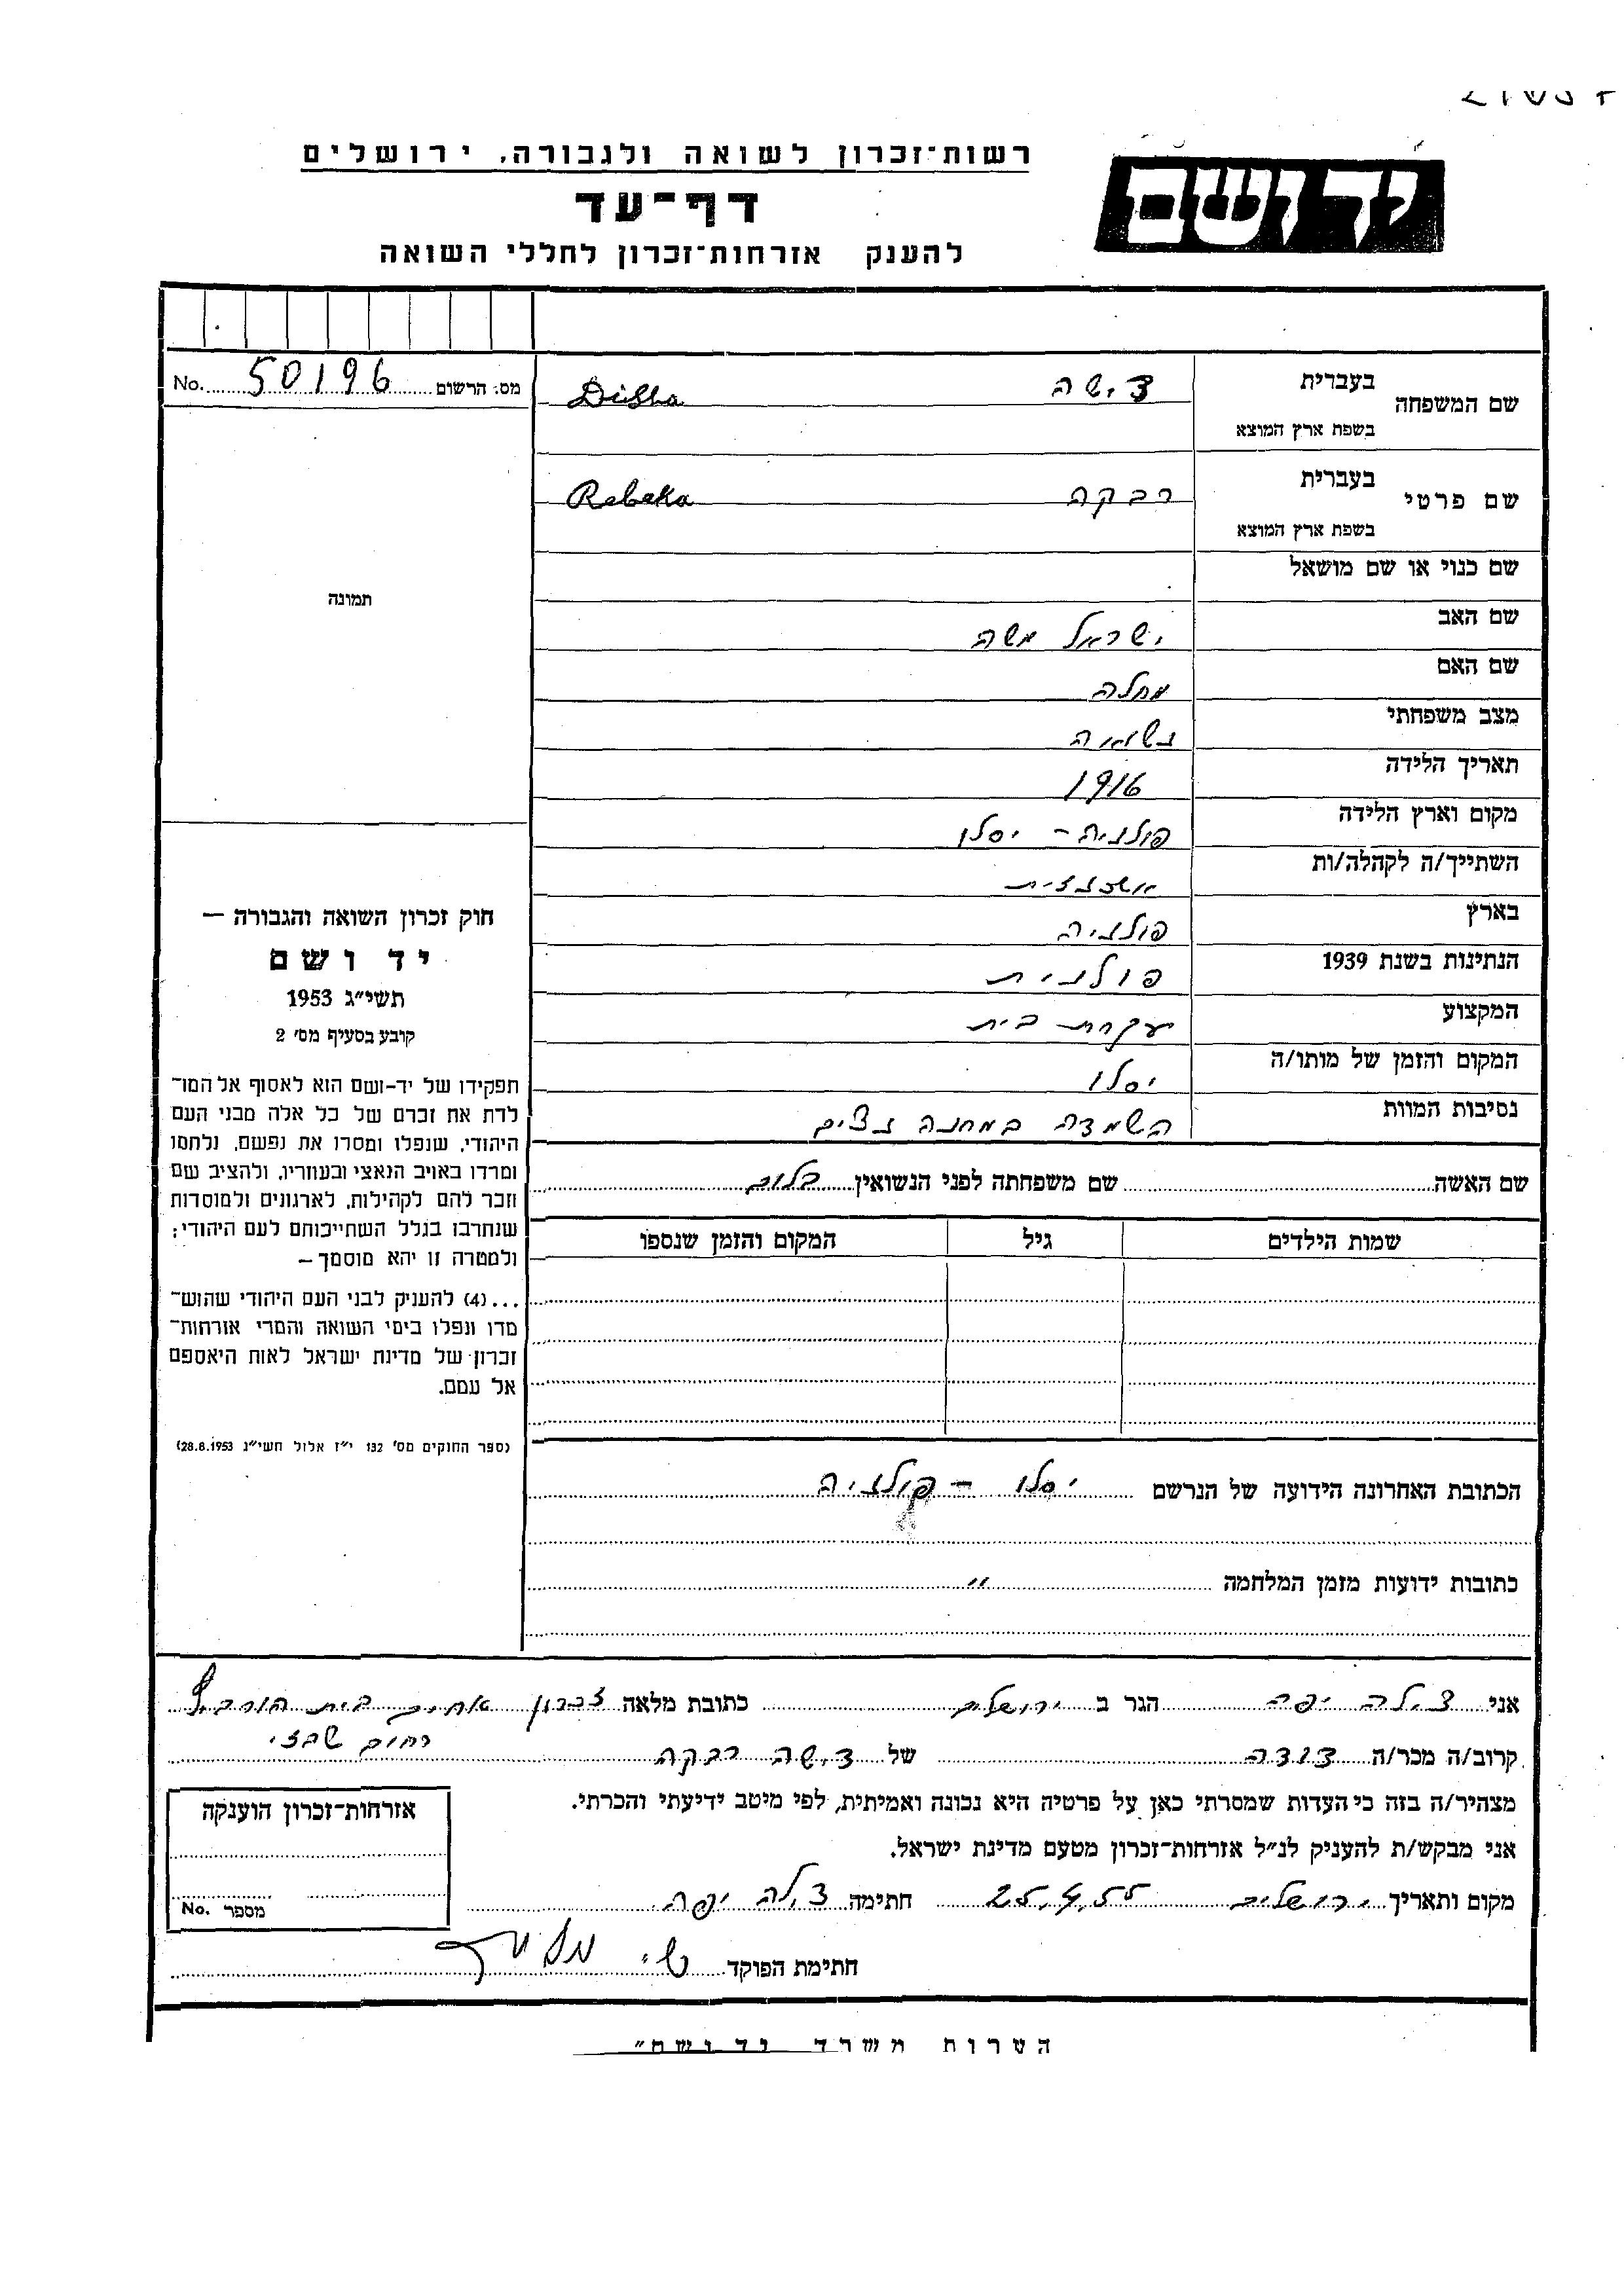 רשות־זכרון לשואה ולגבורה, ירושלים
ידושם
דף־עד
להענק אזרחות־זכרון לחללי השואה
No. 50196 מס. הרשום
שם המשפחה
בעברית
בשפת ארץ המוצא
צ'שה Diisha
שם פרטי
בעברית
בשפת ארץ המוצא
רבקה Rebeka
שם כנוי או שם מושאל
שם האב ישראל משה
שם האם מחלה
מצב משפחתי נשואה
תאריך הלידה 1916
מקום וארץ הלידה פולניה - יסלו
השתייך/ה לקהלה/ות אשכנזית
בארץ פולניה
הנתינות בשנת 1939 פולנית
המקצוע עקרת בית
המקום והזמן של מותו/ה יסלו
נסיבות המוות השמדה במחנה נצים
שם האשה שם משפחתה לפני הנשואין בלום
שמות הילדים גיל המקום והזמן שנספו
הכתובת האחרונה הידועה של הנרשם יסלו - פולניה
כתובות ידועות מזמן המלחמה "
תמונה
חוק זכרון השואה והגבורה —
יד ושם
תשי״ג 1953
קובע בסעיף מס׳ 2
תפקידו של יד-ושם הוא לאסוף אל המו־
לדת את זכרם של כל אלה מבני העם
היהודי, שנפלו ומסרו את נפשם, נלחמו
ומרדו באויב הנאצי ובעוזריו, ולהציב שם
וזכר להם לקהילות, לארגונים ולמוסדות
שנחרבו בגלל השתייכותם לעם היהודי;
ולמטרה זו יהא מוסמך—
...(4) להעניק לבני העם היהודי שהוש־
מדו ונפלו בימי השואה והמרי אזרחות־
זכרון של מדינת ישראל לאות היאספם
אל עמם.
(ספר החוקים מס׳ 132 י״ז אלול תשי״ג 28.8.1953)
אני צילה יפה הגר ב ירושלים כתובת מלאה זכרון בית
רחוב שבזי
קרוב/ה מכר/ה דודה של צ'שה רבקה
מצהיר/ה בזה כי העדות שמסרתי כאן על פרטיה היא נכונה ואמיתית, לפי מיטב ידיעתי והכרתי.
אני מבקש/ת להעניק לנ״ל אזרחות־זכרון מטעם מדינת ישראל.
מקום ותאריך ירושלים 25.4.55 חתימה צילה יפה
חתימת הפוקד
אזרחות־זכרון הוענקה
מספר No.
הערות משרד יד ושם״